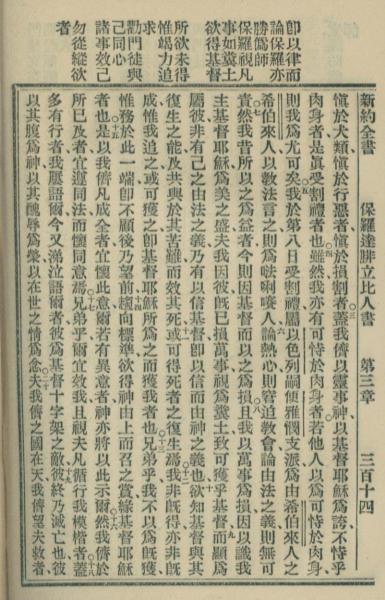 新約全書　保羅達腓立比人書　第三章　三百十四
卽以律而
論保羅亦
勝爲師
保羅視凡
事如糞土
欲得基督
所欲未得
惟竭力追
求
勸門徒與
己同心
諸事效己
勿從縱欲
者
愼於犬類愼於行惡者愼於損割者蓋我儕以靈事神以基督耶穌爲誇不恃乎
肉身者是眞受割禮者也雖然我亦有可恃於肉身者若他人以爲可恃於肉身
則我爲尤可矣我於第八日受割禮屬以色列嗣便雅憫支派爲由希伯來人之
希伯來人以教法言之則爲唎人論熱心則窘迫教會論由法之義則無可
責然我昔所以之爲益者今則因基督而以之爲損且我以萬事爲損因以識我
主基督耶穌爲美之盛夫我因彼旣已損萬事視爲糞土致可獲乎基督而顯爲
屬彼非有己之由法之義乃有以信基督卽以信而由神之義也欲知基督與其
復生之能及共與於其苦難而效其死或可得死者之復生焉我非旣得亦非旣
成惟我追之或可獲之卽基督耶穌所爲之而獲我者也兄弟乎我不以爲旣獲
惟務於此一端卽不顧後乃望前趨向標準欲得神由上而召之賞緣基督耶穌
者也是以我儕凡成全者宜懷此意爾若有異意者神亦將以此示爾然我儕於
所已及者宜遵同法而懷同意焉兄弟乎宜效我且視夫凡循行我模楷者蓋
多有行者我屢語爾今又涕泣語爾者彼爲基督十字架之敵彼終乃滅亡也彼
以其腹爲神以其醜辱爲榮以在世之情爲念夫我儕之國在天我儕望夫救者